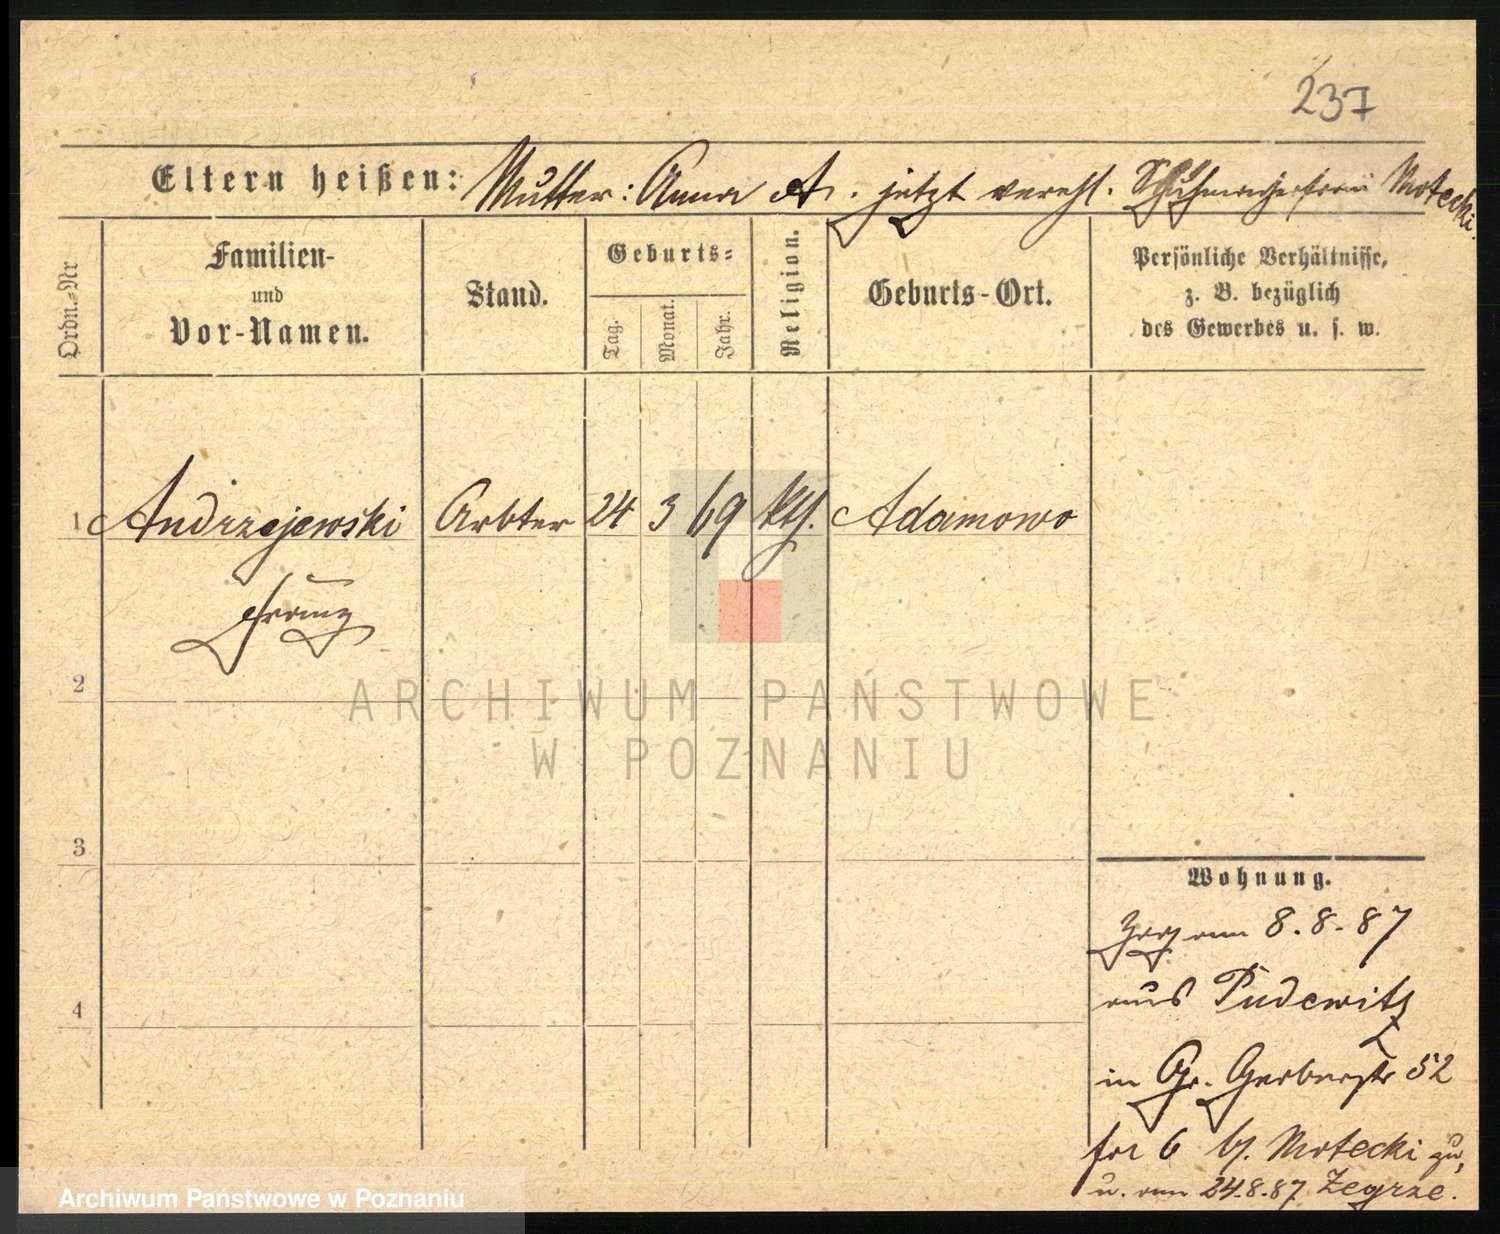 237
Eltern heißen: Mutter: Anna A. jetzt verehl. Schuhmacherfrau Motecki.
Ordn.-Nr
Familien- und Vor-Namen.
Stand.
Geburts=
Tag.
Monat.
Jahr.
Religion.
Geburts-Ort.
Persönliche Verhältnisse,
z. B. bezüglich
des Gewerbes u. s. w.
1 Andrzejewski Arbter 24 3 69 kth. Adamowo
Franz
2
ARCHIWUM PAŃSTWOWE
W POZNANIU
3
4
Wohnung.
Zug am 8.8.87
aus Pudewitz
in Gr. Gerberstr 52
6 b. Motecki zu,
u. am 24.8.87 Zegrze.
Archiwum Państwowe w Poznaniu